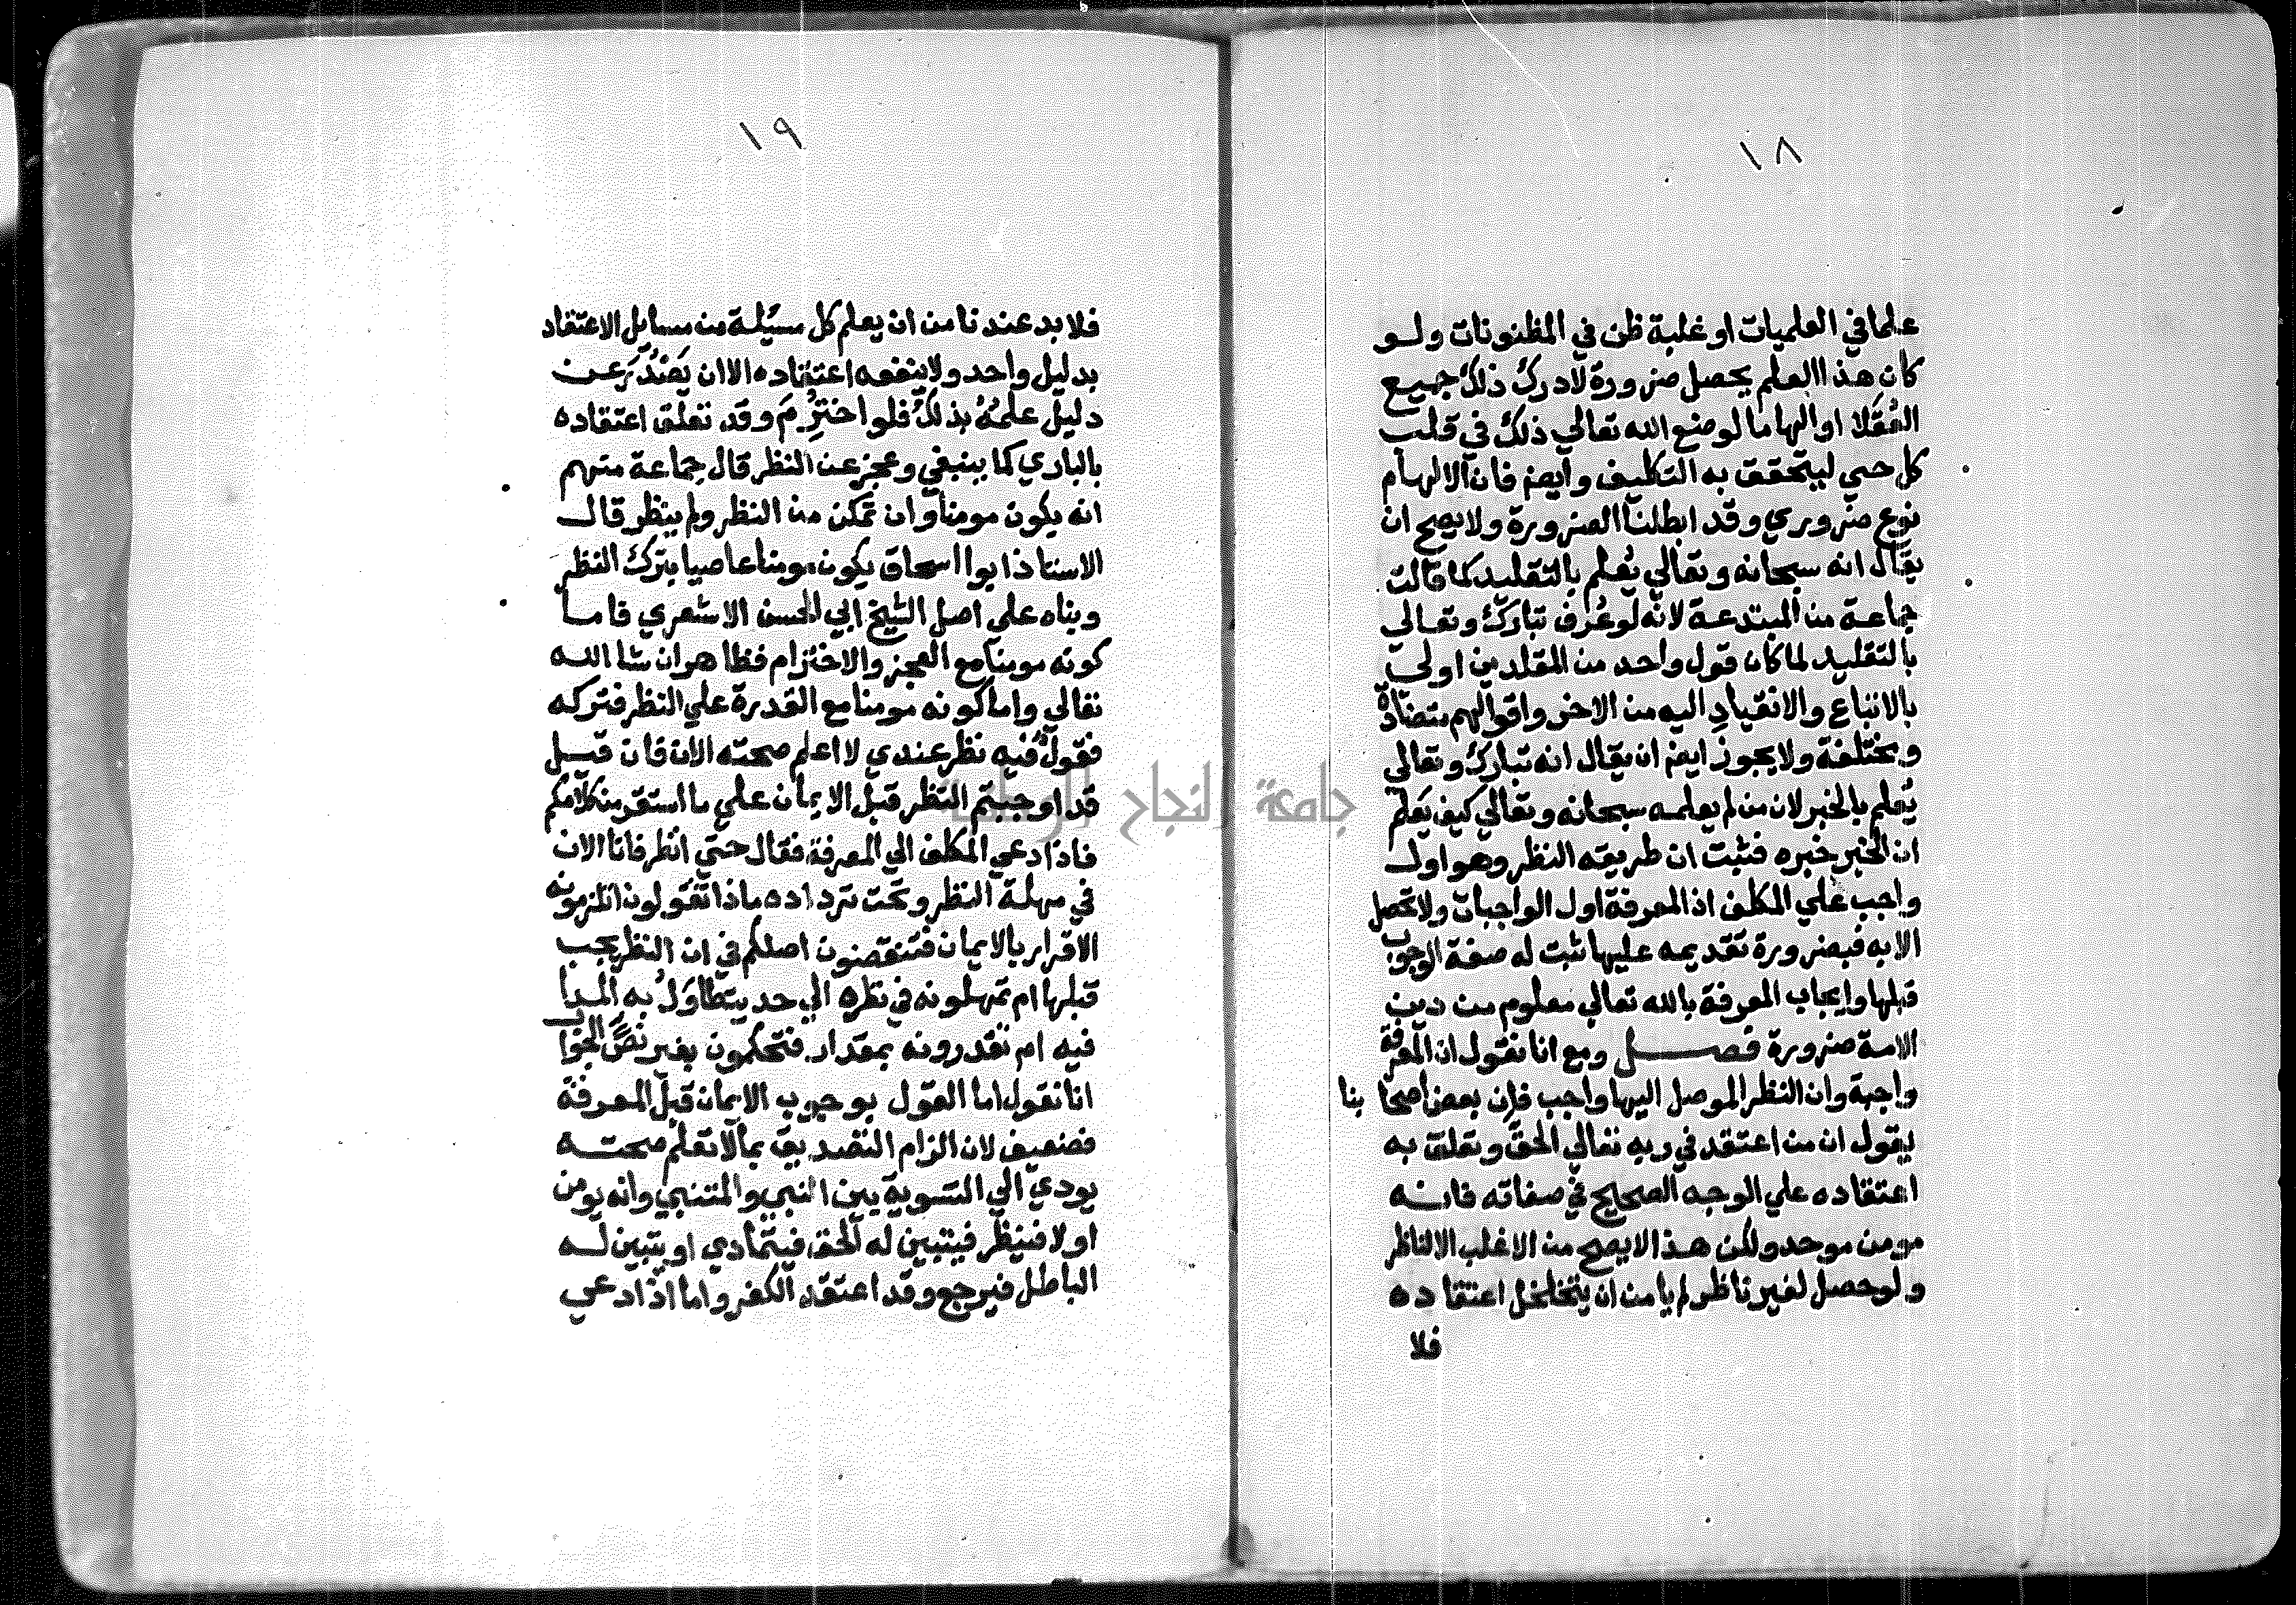 ١٨
علما في العلميات او غلبة ظن في المظنونات ولو
كان هذا العلم يحصل ضرورة لادرك ذلك جميع
العُقَلا او الهاما لوضع الله تعالي ذلك في قلب
كل حي ليتحقق به التكليف وايضا فان الالهام
نوع ضروري وقد ابطلنا الضرورة ولا يصح ان
يقال انه سبحانه وتعالي يُعلم بالتقليد كما قالت
جماعة من المبتدعة لانه لو عُرف تبارك وتعالى
بالتقليد لما كان قول واحد من المقلدين اولي
بالاتباع والانقياد اليه من الاخر واقوالهم متضادة
ومختلفة ولا يجوز ايضا ان يقال انه تبارك وتعالي
يُعلم بالخبر لان من لم يعلمه سبحانه وتعالي كيف يَعلم
ان الخبر خبره فثبت ان طريقه النظر وهو اول
واجب علي المكلف اذ المعرفة اول الواجبات ولا تحصل
الا به فبضرورة تقديمه عليها ثبت له صفة الوجوب
قبلها وايجاب المعرفة بالله تعالي معلوم من دين
الامة ضرورة فصل ومع انا نقول ان المعرفة
واجبة وان النظر الموصل اليها واجب فإن بعض اصحابنا
يقول ان من اعتقد في ربه تعالي الحق وتعلق به
اعتقاده علي الوجه الصحيح في صفاته فانه
مومن موحد ولكن هذا لا يصح من الاغلب الا لناظر
ولو حصل لغير ناظر لم يامن ان يتخلخل اعتقاده
فلا
١٩
فلا بد عندنا من ان يعلم كل مسيلة من مسايل الاعتقاد
بدليل واحد ولا ينفعه اعتقاده الا ان يَصْدُرَ عن
دليل علمهُ بذلك فلو اختُرِم وقد تعلق اعتقاده
بالباري كما ينبغي وعجز عن النظر قال جماعة منهم
انه يكون مومنا وان تمكن من النظر ولم ينظر قال
الاستاذ ابوا اسحاق يكون مومنا عاصيا بترك النظر
وبناه على اصل الشيخ ابي الحسن الاشعري فاما
كونه مومنا مع العجز والاخترام فظاهر ان شا الله
تعالي واما كونه مومنا مع القدرة علي النظر فتركه
فقولٌ فيه نظر عندي لا اعلم صحته الان فان قيل
قد اوجبتم النظر قبل الايمان علي ما استقر من كلامكم
فاذا دعي المكلف الي المعرفة فقال حتي انظر فانا الان
في مهلة النظر وتحت ترداده ماذا تقولون اتلزمونه
الاقرار بالايمان فتنقضون اصلكم في ان النظر يجب
قبلها ام تمهلونه في نظره الي حد يتطاول به المدا
فيه ام تقدرونه بمقدار فتحكمون بغير نصّ الجواب
انا نقول اما القول بوجوب الايمان قبل المعرفة
فضعيف لان الزام التصديق بما لا تعلم صحته
يودي الي التسوية بين النبي والمتنبي وانه يومن
اولا فينظر فيتبين له الحق فيتمادي او يتبين له
الباطل فيرجع وقد اعتقد الكفر واما اذا دعي
جامعة النجاح الوطنية